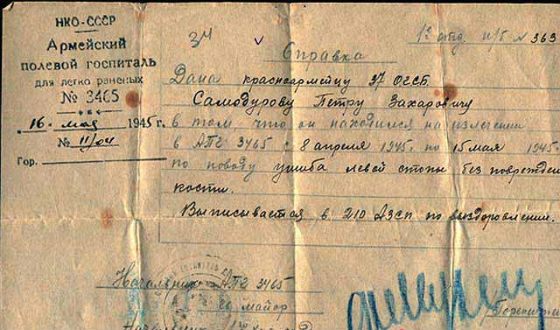 НКО-СССР
Армейский
полевой госпиталь
для легко раненых
№ 3465
16. мая 1945 г.
№ 11/04
Гор.
Справка
Дана красноармейцу 37 ОГСБ.
Самодурову Петру Захаровичу
в том, что он находился на излечении
в АПГ 3465 с 8 апреля 1945. по 15 мая 1945.
по поводу ушиба левой стопы без поврежден
кости.
Выписывается в 210 АЗСП по выздоровлении.
Начальник АПГ 3465
майор
Начальник